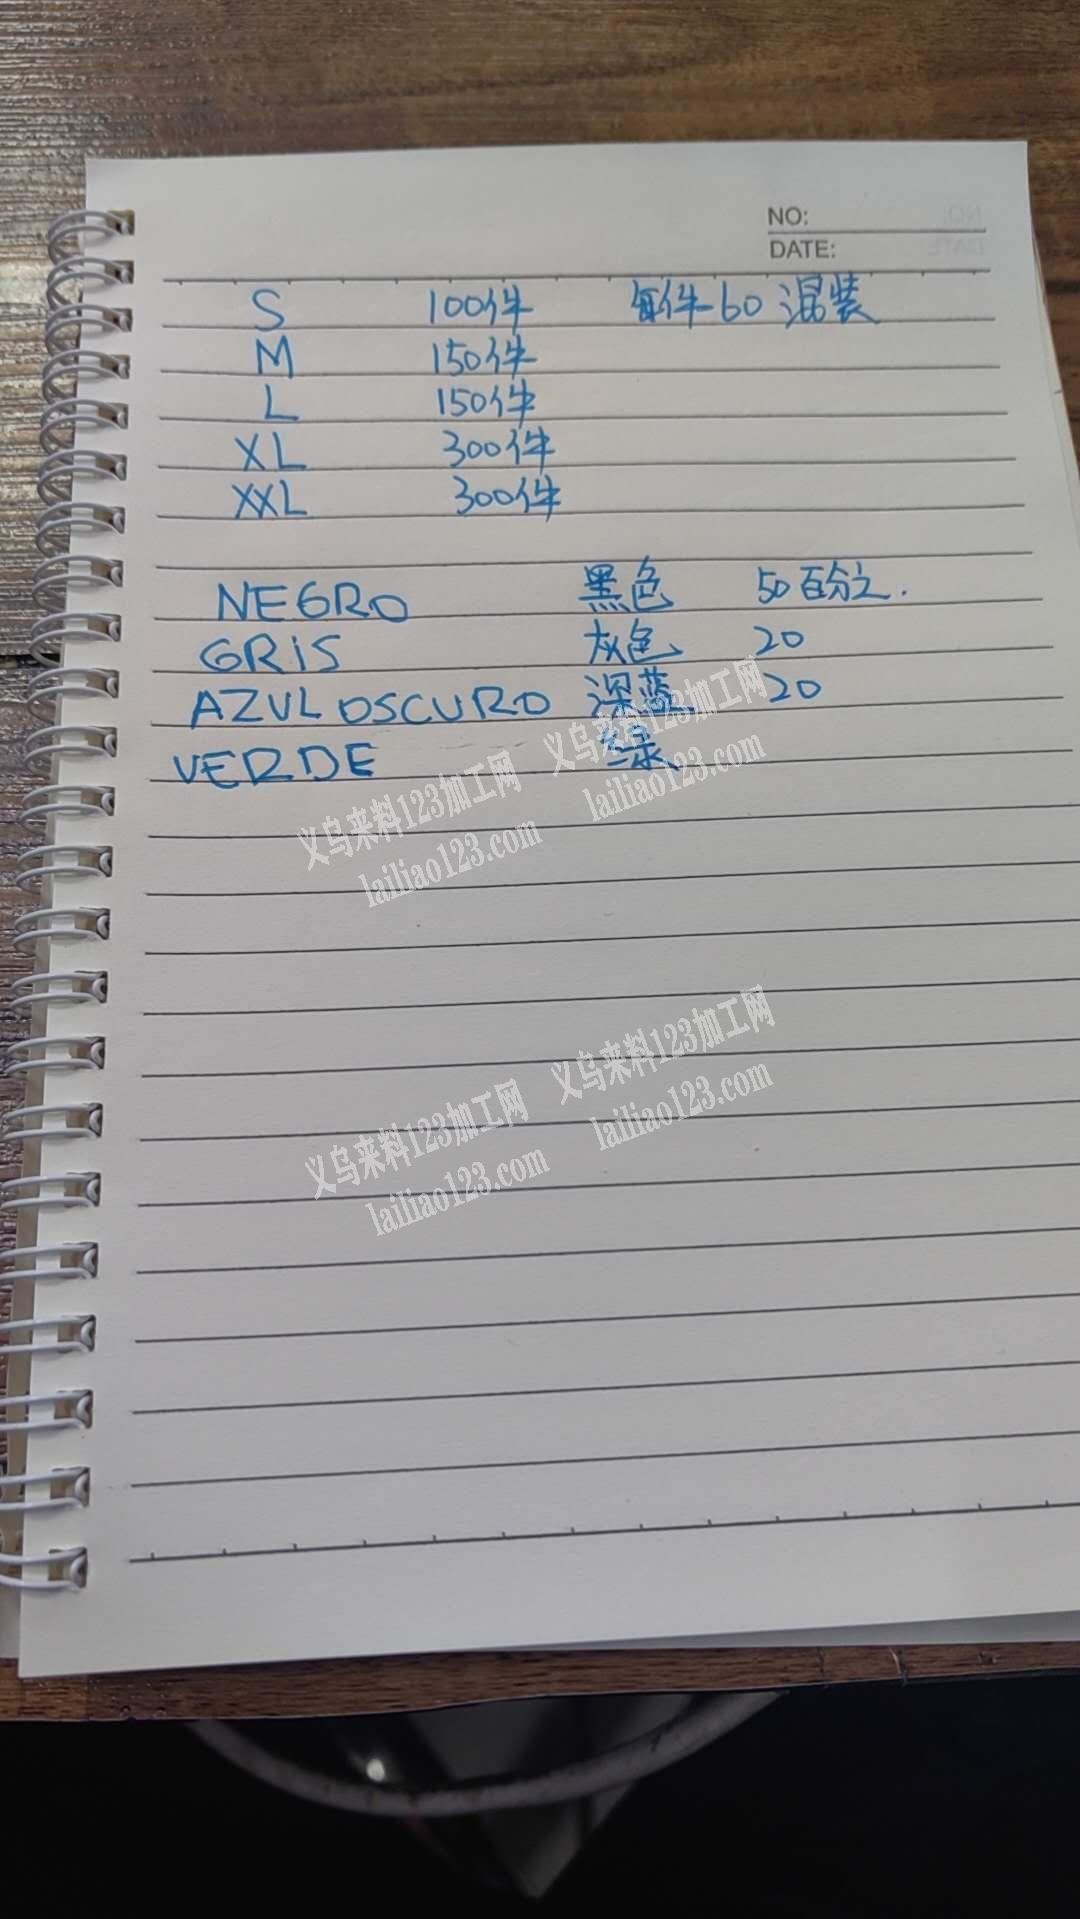 NO:
DATE:
S 100件 每件60 混装
M 150件
L 150件
XL 300件
XXL 300件
NEGRO 黑色 50百分之.
GRIS 灰色 20
AZUL OSCURO 深蓝 20
VERDE 绿
义乌来料123加工网 义乌来料123加工网
lailiao123.com lailiao123.com
义乌来料123加工网 义乌来料123加工网
lailiao123.com lailiao123.com